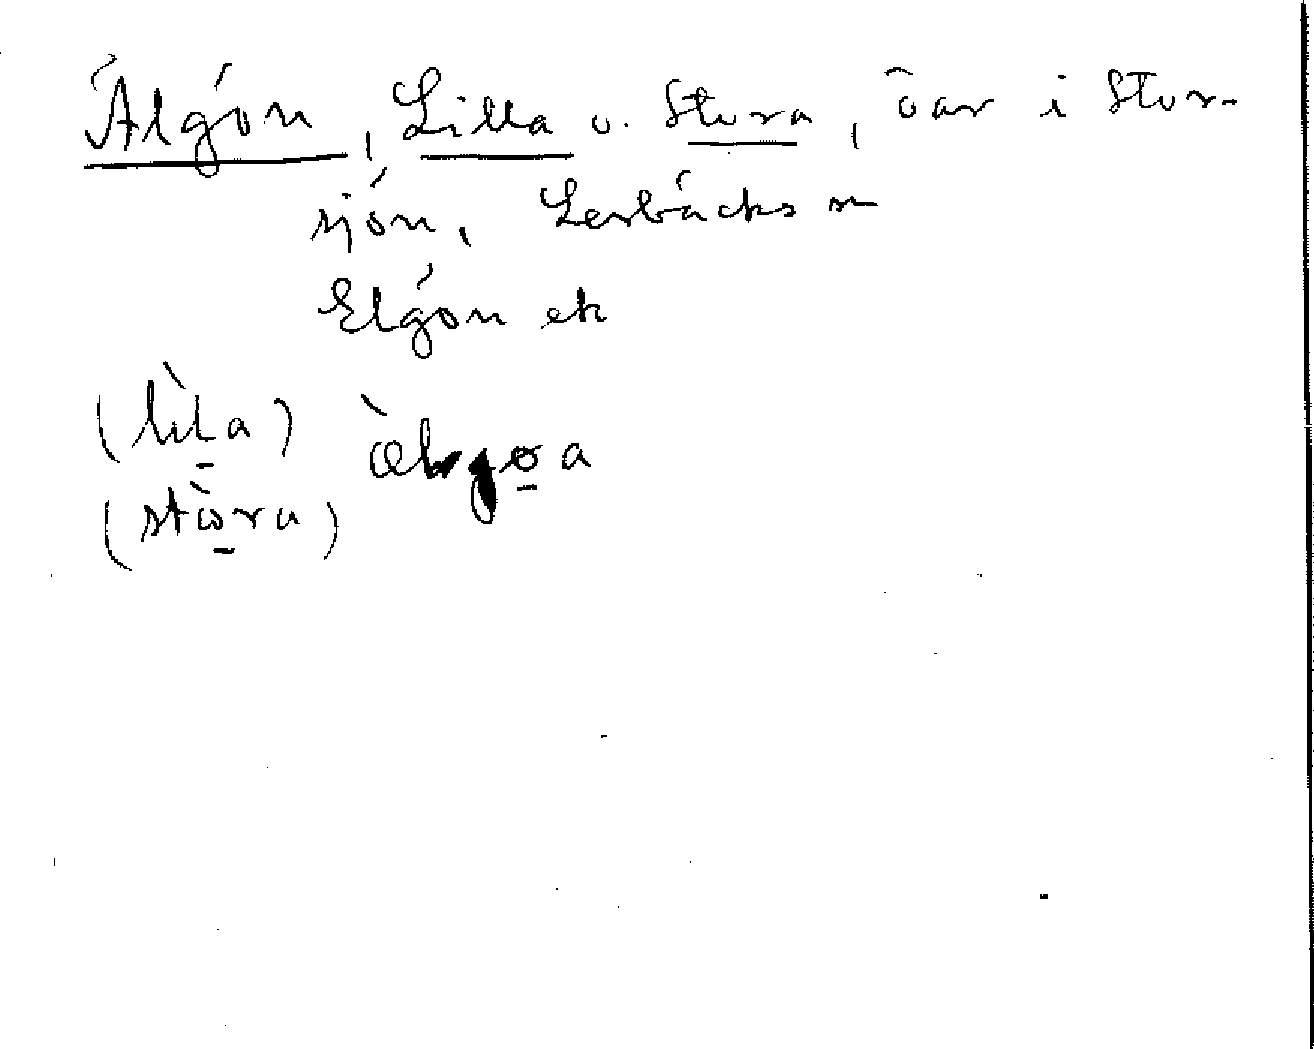 Älgön, Lilla o. Stora, öar i Stor-
sjön, Lerbäcks sn
Elgön ek
(lìla) æ̀lgøa
(stòra)